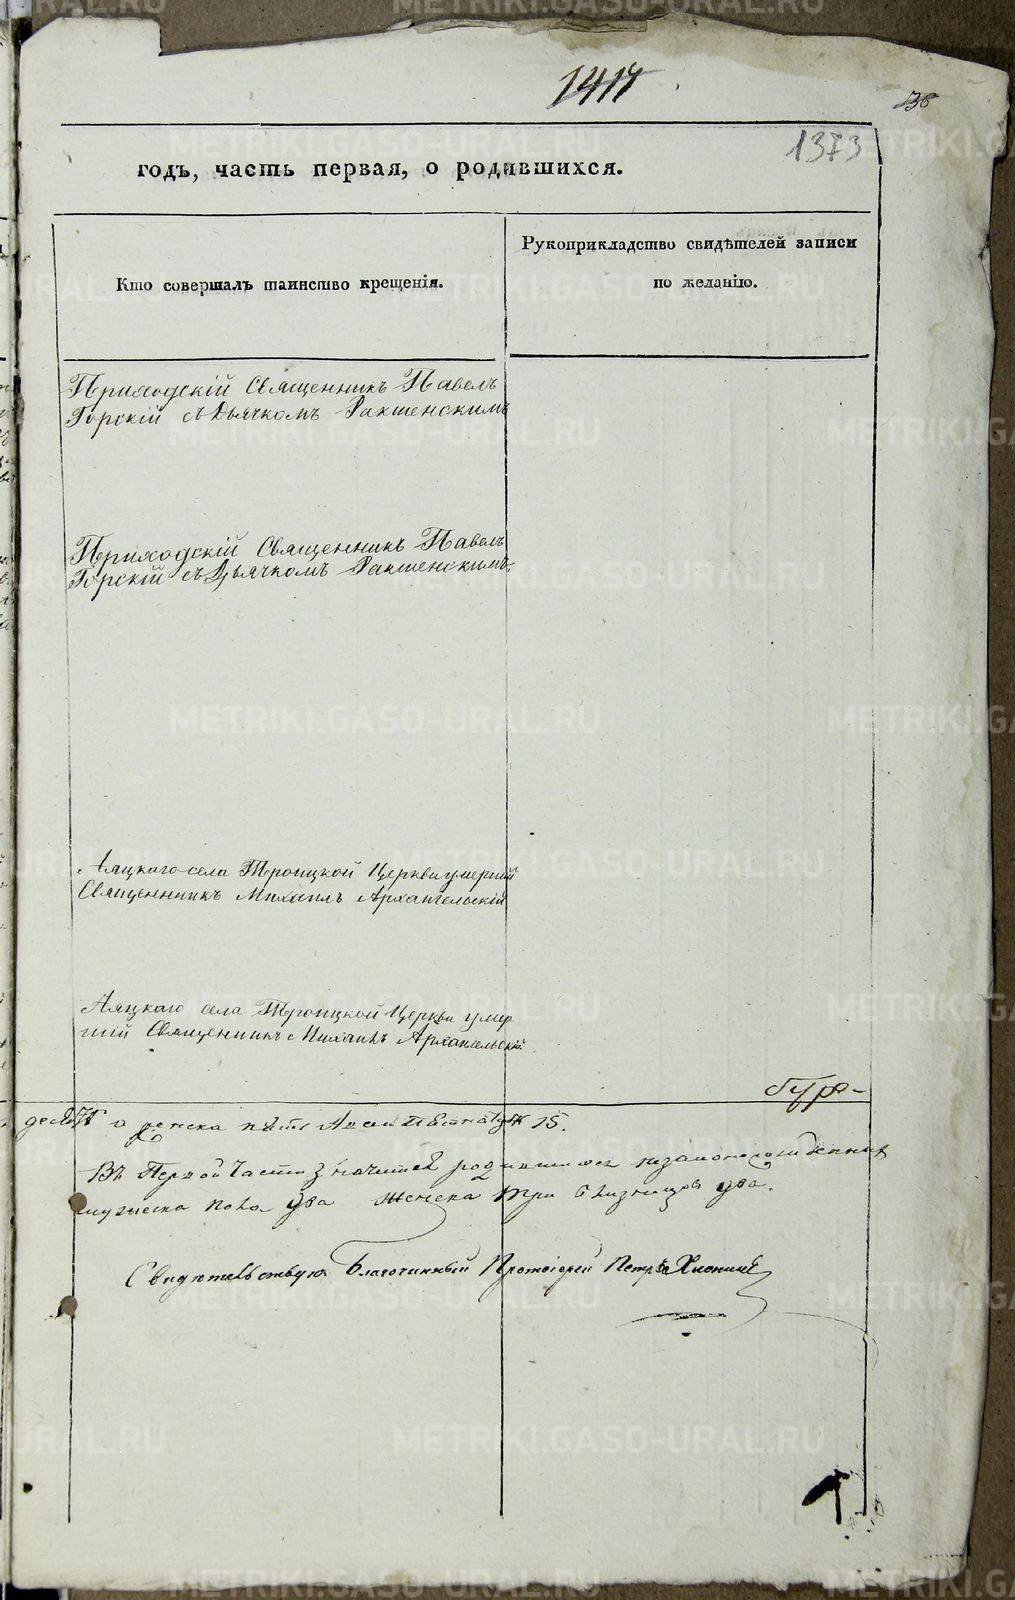 1414
36
1373
годъ, часть первая, о родившихся.
Кто совершалъ таинство крещенія.
Рукоприкладство свидѣтелей записи
по желанію.
Приходскій Священникъ Павелъ
Горскій съ Дьячкомъ Ракшенскимъ
Приходскій Священникъ Павелъ
Горскій съ Дьячкомъ Ракшенскимъ
Аяцкаго села Троицкой Церкви умершій
Священникъ Михаилъ Архангельскій
Аяцкаго села Троицкой Церкви умер
шій Священникъ Михаилъ Архангельскій
15.
Въ Первой Части значится родившихся незаконорожденныхъ
мужеска пола два женска три близнецовъ два.
Свидѣтельствую Благочинный Протоіерей Петръ
METRIKI.GASO-URAL.RU